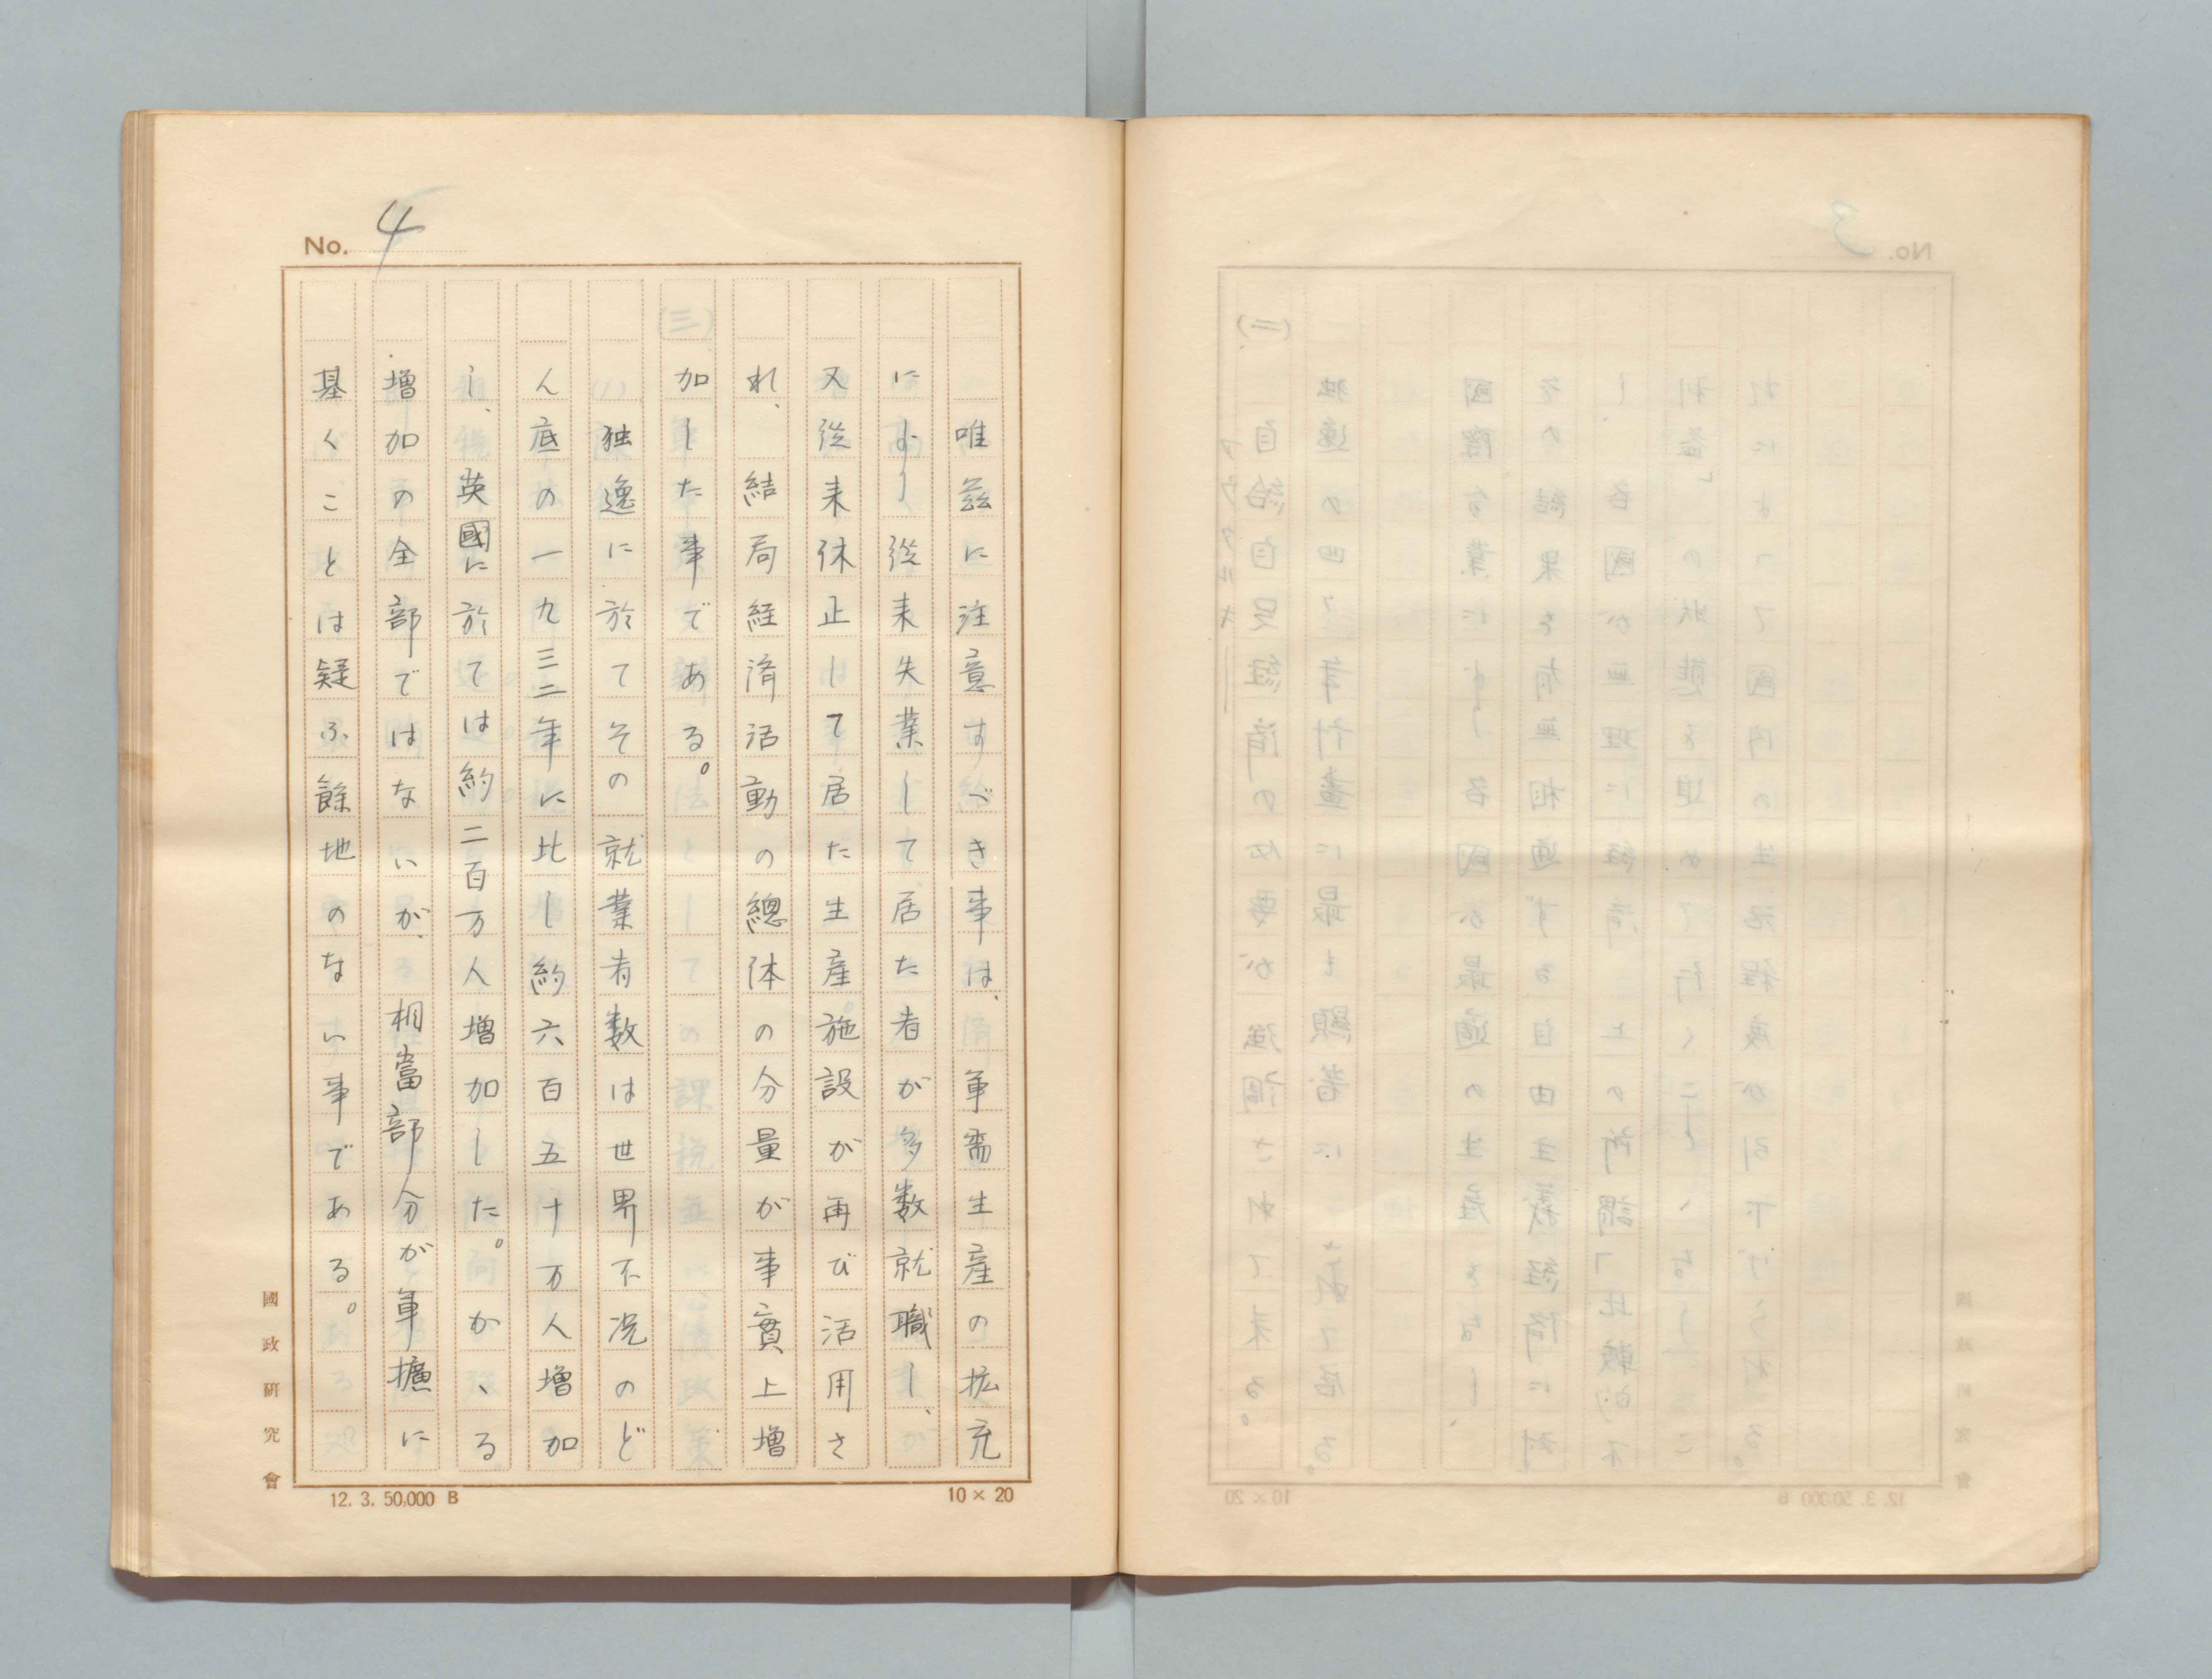 No. 4
唯茲に注意すべき事は、軍需生産の拡充
により従来失業して居た者が多数就職し、
又従来休止して居た生産施設が再び活用さ
れ、結局経済活動の總体の分量が事實上増
加した事である。
独逸に於てその就業者数は世界不況のど
ん底の一九三二年に比し約六百五十万人増加
し、英國に於ては約二百万人増加した。かゝる
増加の全部ではないが、相當部分が軍擴に
基くことは疑ふ餘地のない事である。
國政研究會
12. 3. 50,000 B
10 × 20